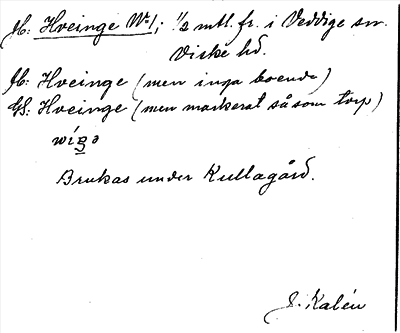 Jb: Hveinge No 1; 1/2 mtl. fr. i Veddige sn.
Viske hd.
Jb: Hveinge (men inga boende)
GS: Hveinge (men markerat såsom torp)
Brukas under Kullagård.
J. Kalén